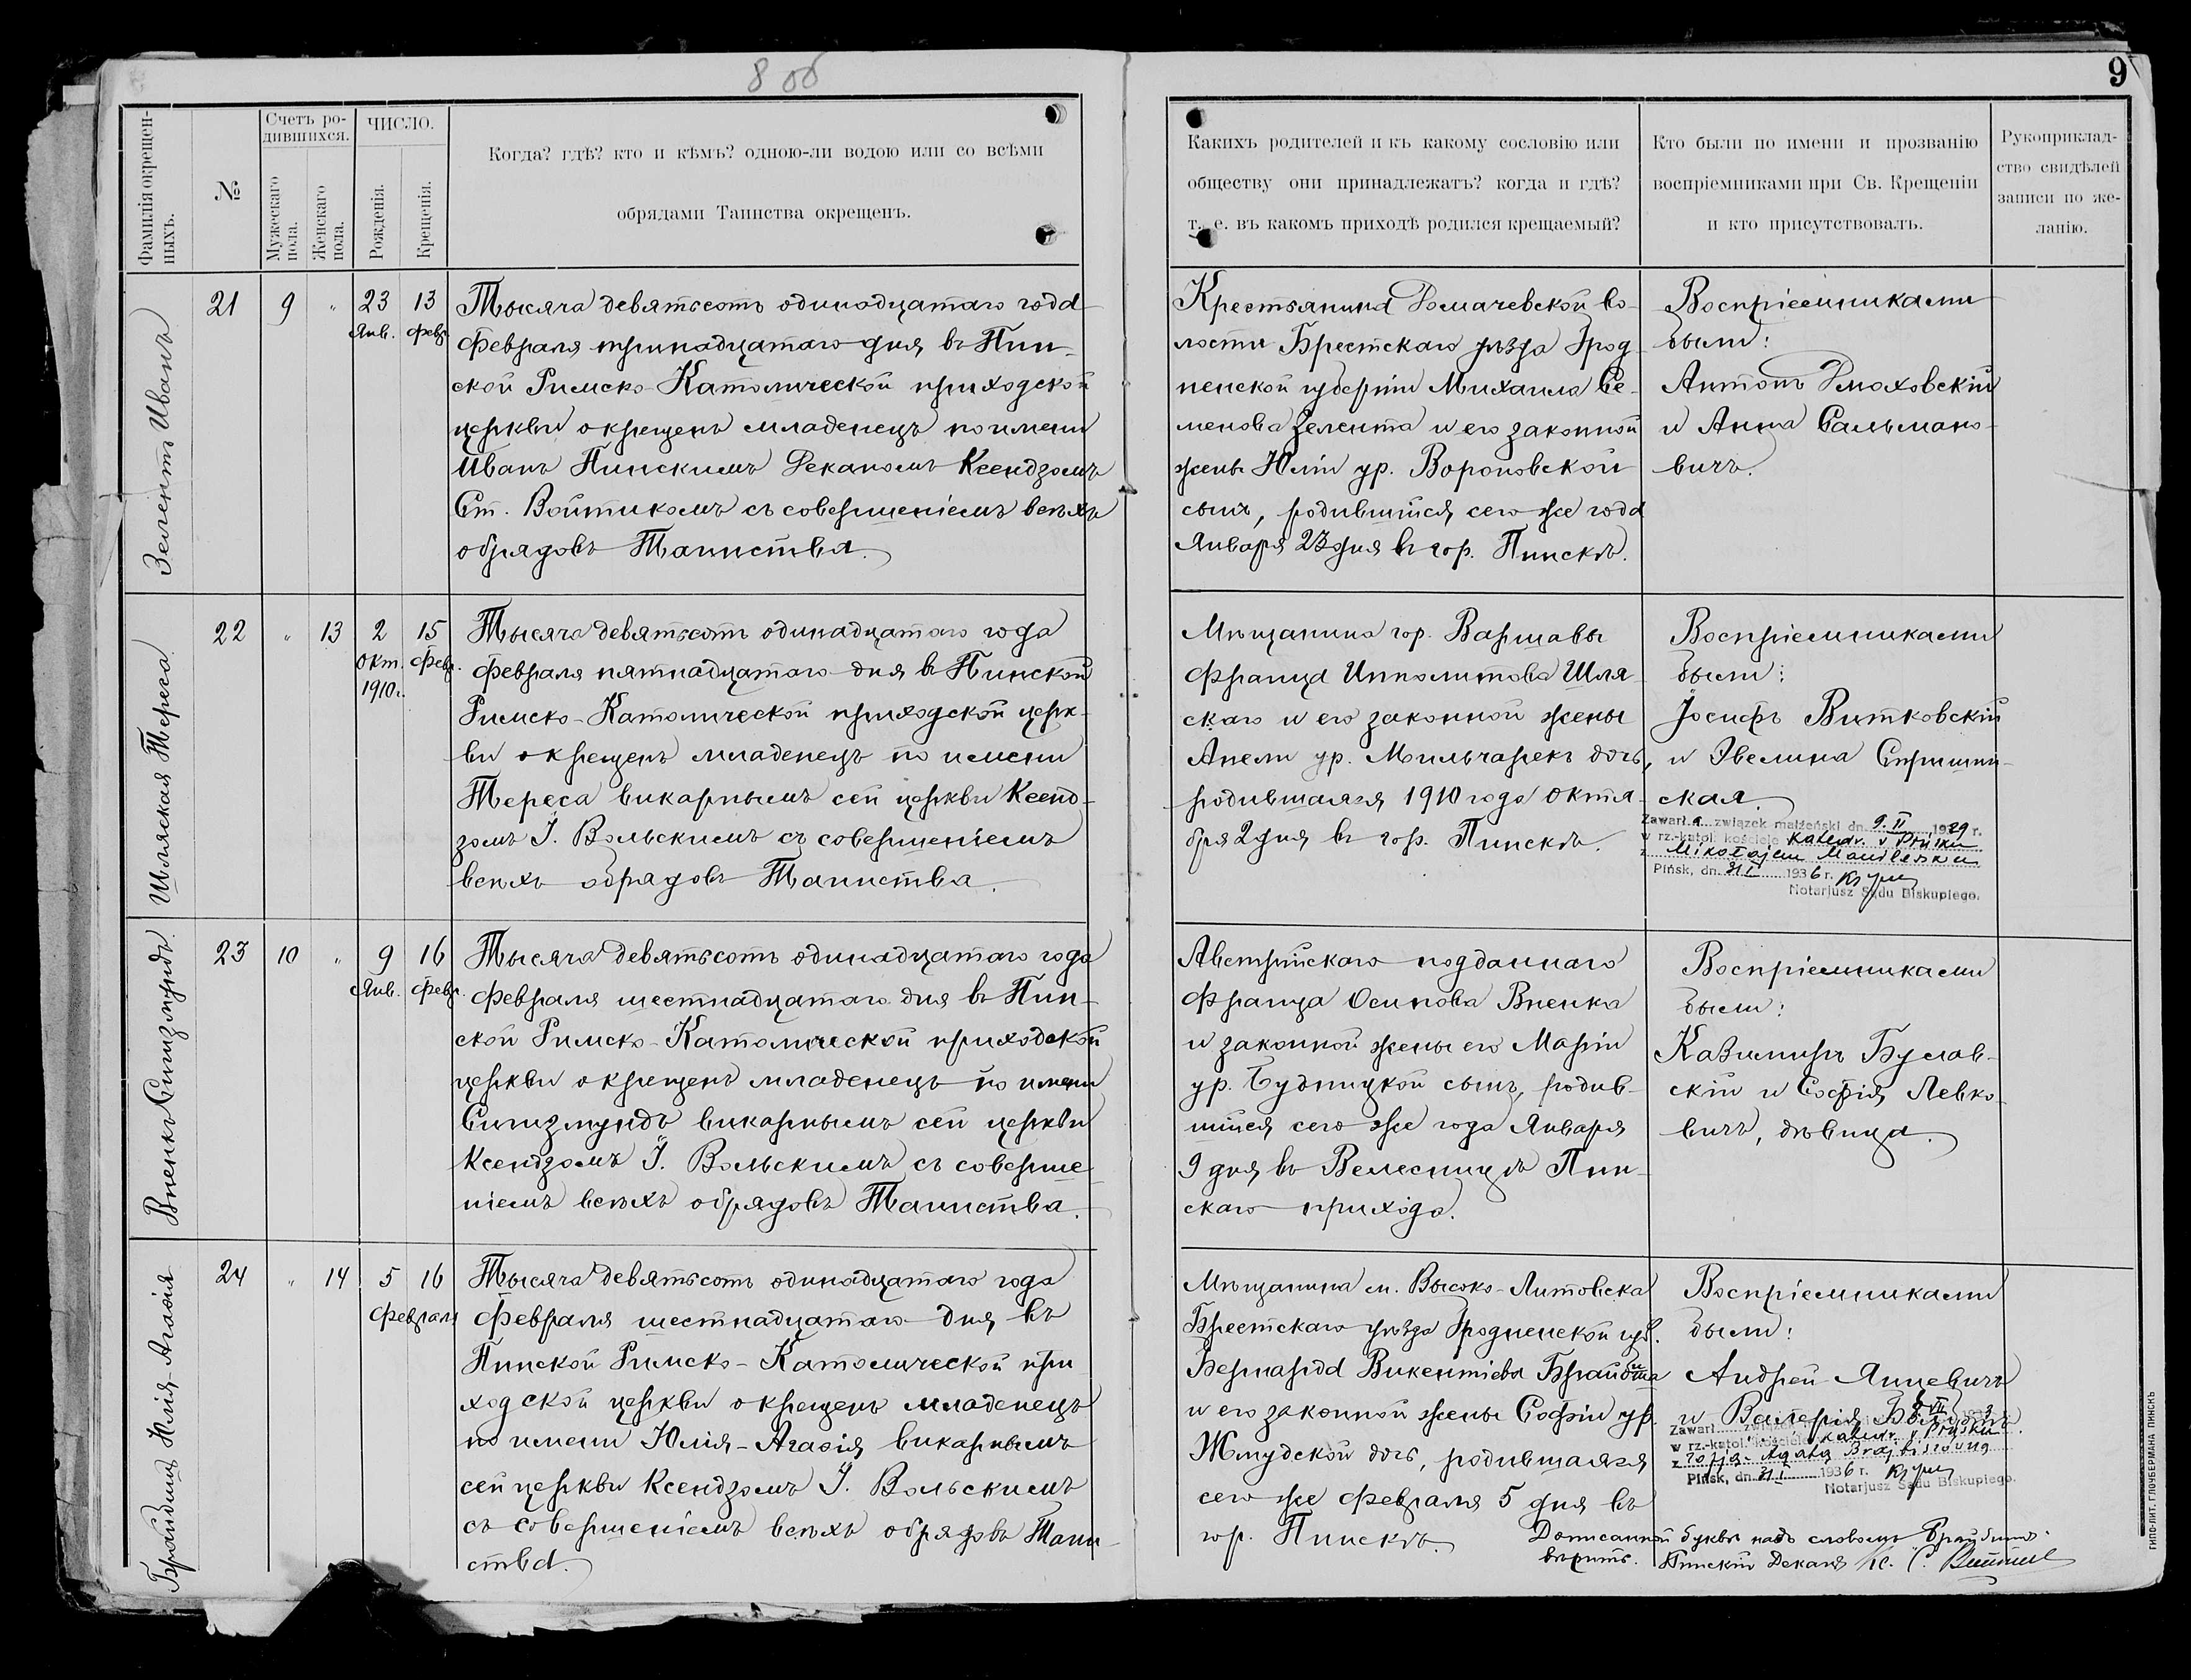 8 об
9
Фамилія окрещен-
ныхъ.
№
Счетъ ро-
дившихся.
Мужескаго
пола.
Женскаго
пола.
ЧИСЛО.
Рожденія.
Крещенія.
Когда? гдѣ? кто и кѣмъ? одною-ли водою или со всѣми
обрядами Таинства окрещенъ.
Какихъ родителей и къ какому сословію или
обществу они принадлежатъ? когда и гдѣ?
т. е. въ какомъ приходѣ родился крещаемый?
Кто были по имени и прозванію
воспріемниками при Св. Крещеніи
и кто присутствовалъ.
Рукоприклад-
ство свидѣлей
записи по же-
ланію.
Зелентъ Иванъ
21 9 " 23 13
Янв. Февр.
Тысяча девятьсотъ одинадцатаго года
Февраля тринадцатаго дня въ Пин-
ской Римско-Католической приходской
церкви окрещенъ младенецъ по имени
Иванъ Пинскимъ Деканомъ Ксендзомъ
Ст. Войтикомъ съ совершеніемъ всѣхъ
обрядовъ Таинства.
Крестьянина Домачевской во-
лости Брестскаго уѣзда Грод-
ненской губерніи Михаила Се-
менова Зелента и его законной
жены Юліи ур. Вороновской
сынъ, родившійся сего же года
Января 23 дня въ гор. Пинскѣ.
Воспріемниками
были:
Антонъ Дмоховскій
и Анна Сальмано-
вичъ.
Шляская Тереса
22 " 13 2 15
Окт. Февр.
1910 г.
Тысяча девятьсотъ одинадцатаго года
Февраля пятнадцатаго дня въ Пинской
Римско-Католической приходской церк-
ви окрещенъ младенецъ по имени
Тереса викарнымъ сей церкви Ксенд-
зомъ І. Вольскимъ съ совершеніемъ
всѣхъ обрядовъ Таинства.
Мѣщанина гор. Варшавы
Франца Ипполитова Шля-
скаго и его законной жены
Анели ур. Мильчарекъ дочь,
родившаяся 1910 года Октя-
бря 2 дня въ гор. Пинскѣ.
Воспріемниками
были:
Іосифъ Витковскій
и Эвелина
ская.
Zawarł a związek małżeński dn. 9.II 1929 r.
w rz.-katol. kościele katedr. w Pińsku
z Mikołajem
Pińsk, dn. 31.I 1936 r.
Notarjusz Sądu Biskupiego.
Впенкъ Сигизмундъ
23 10 " 9 16
Янв. Февр.
Тысяча девятьсотъ одинадцатаго года
Февраля шестнадцатаго дня въ Пин-
ской Римско-Католической приходской
церкви окрещенъ младенецъ по имени
Сигизмундъ викарнымъ сей церкви
Ксендзомъ І. Вольскимъ съ соверше-
ніемъ всѣхъ обрядовъ Таинства.
Австрійскаго подданнаго
Франца Осипова Впенка
и законной жены его Маріи
ур. Будницкой сынъ, родив-
шійся сего же года Января
9 дня въ Велесницѣ Пин-
скаго прихода.
Воспріемниками
были:
Казимиръ Буслав-
скій и Софія Левко-
вичъ, дѣвица.
Юлія-Агафія
24 " 14 5 16
Февраля
Тысяча девятьсотъ одинадцатаго года
Февраля шестнадцатаго дня въ
Пинской Римско-Католической при
ходской церкви окрещенъ младенецъ
по имени Юлія-Агафія викарнымъ
сей церкви Ксендзомъ І. Вольскимъ
съ совершеніемъ всѣхъ обрядовъ Таин-
ства.
Мѣщанина м. Высоко-Литовска
Брестскаго уѣзда Гродненской губ.
Бернарда Викентіева
и его законной жены Софіи ур.
Жмудской дочь, родившаяся
сего же Февраля 5 дня въ
гор. Пинскѣ.
Воспріемниками
были:
Андрей Янцевичъ
и Валерія
Zawarł związek
w rz.-katol. kościele katedr. w Pińsku
z
Pińsk, dn. 31.I 1936 r.
Notarjusz Sądu Biskupiego.
буквы надъ словомъ
вѣрить. Пинскій Деканъ Кс. С. Войтикъ
ТИПО-ЛИТ. ГЛОУБЕРМАНА ПИНСКЪ